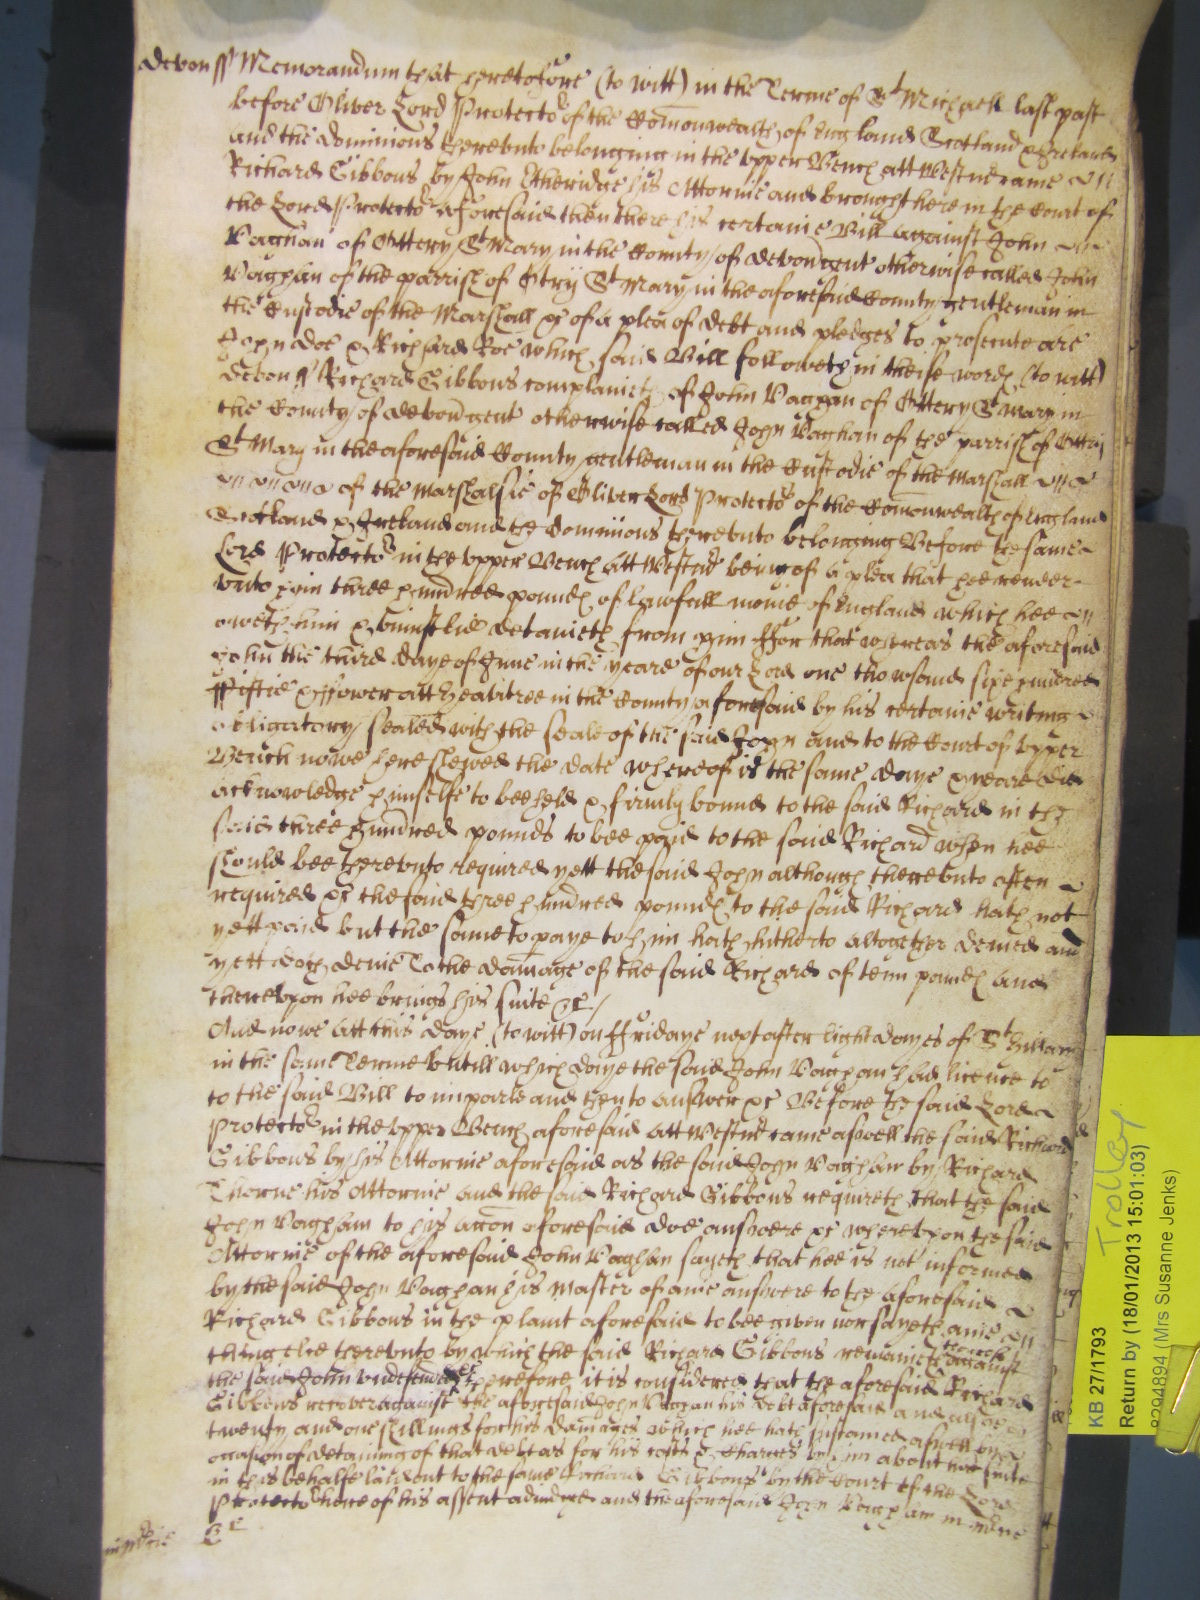 Devon ss Memorandum that heretofore (to witt) in the Terme of St Michaell last past
before Oliver Lord Protector of the Comonwealth of England Scotland & Ireland
and the dominions thereunto belonging in the upper Bench att Westmr came
Richard Gibbons by John Etheridge his Attornie and brought here in the Court of
the Lord Protector aforesaid then there his certaine Bill against John
Vaghan of Ottery St Mary in the County of Devon gent otherwise called John
Vaghan of the parrish of Otery St Mary in the aforesaid County gentleman in
the Custodie of the Marshall &c of a plea of debt and pledges to prosecute are
John Doe & Richard Roe which said Bill followeth in theise words (to witt)
Devon ss Richard Gibbons complaineth of John Vaghan of Ottery St Mary in
the County of Devon gent otherwise called John Vaghan of the parrish of Ottery
St Mary in the aforesaid County gentleman in the Custodie of the Marshall
of the Marshalsie of Oliver Lord Protector of the Comonwealth of England
Scotland & Ireland and the dominions thereunto belonging Before the same
Lord Protector in the upper Bench att Westmr being of a plea that hee render
unto him three hundred pounds of lawfull monie of England which hee
oweth him & uniustlie detaineth from him ffor that whereas the aforesaid
John the third daye of June in the yeare of our Lord one thowsand sixe hundred
ffiftie & ffower att Heavitree in the County aforesaid by his certaine writing
obligatory sealed with the seale of the said John and to the Court of upper
Bench nowe here shewed the date whereof is the same daye & yeare did
acknowledge himselfe to bee held & firmly bound to the said Richard in the
said three hundred pounds to bee paid to the said Richard when hee
should bee thereunto required yett the said John although thereunto often
required &c the said three hundred pounds to the said Richard hath not
yett paid but the same to paye to him hath hitherto altogether denied and
yett doth denie To the damage of the said Richard of tenn pounds and
thereupon hee brings his suite &c /
And nowe att this daye (to witt) on ffridaye next after Eight dayes of St Hillary
in the same Terme untill which daye the said John Vaghan had licence to
to the said Bill to imparle and then to answer &c Before the said Lord
Protector in the upper Bench aforesaid att Westmr came aswell the said Richard
Gibbons by his Attornie aforesaid as the said John Vaghan by Richard
Thorne his Attornie and the said Richard Gibbons requireth that the said
John Vaghan to his accon aforesaid doe answere &c whereupon the said
Attornie of the aforesaid John Vaghan sayeth that hee is not informed
by the said John Vaghan his Master of anie answere to the aforesaid
Richard Gibbons in the plaint aforesaid to bee given nor sayeth anie
thing else thereunto by which the said Richard Gibbons remaineth thereof against
the said John undefended &c Therefore it is considered that the aforesaid Richard
Gibbons recover against the aforesaid John Vaghan his debt aforesaid and alsoe
twenty and one shillings for his damages which hee hath sustained aswell by
occasion of detaining of that debt as for his costs & charges by him about his suite
in this behalfe laid out to the same Richard Gibbons by the Court of the Lord
Protector here of his assent adiudged and the aforesaid John Vaghan in
&c
KB 27/1793
Trolley
Return by (18/01/2013 15:01:03)
8294894 (Mrs Susanne Jenks)